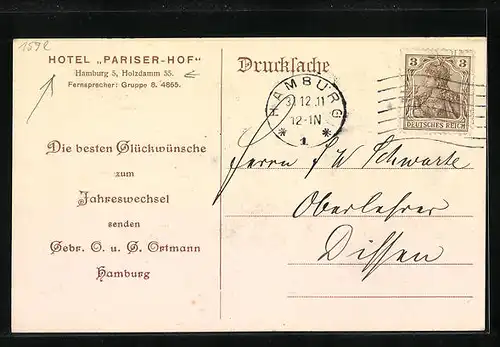 1592
HOTEL „PARISER-HOF"
Hamburg 5, Holzdamm 35.
Fernsprecher: Gruppe 8. 4865.
Die besten Glückwünsche
zum
Jahreswechsel
senden
Gebr. O. u. G. Ortmann
Hamburg
Drucksache
HAMBURG
31.12.11
12-1N
* 1 *
3 3
DEUTSCHES REICH
Herrn F W Schwarte
Oberlehrer
Dissen